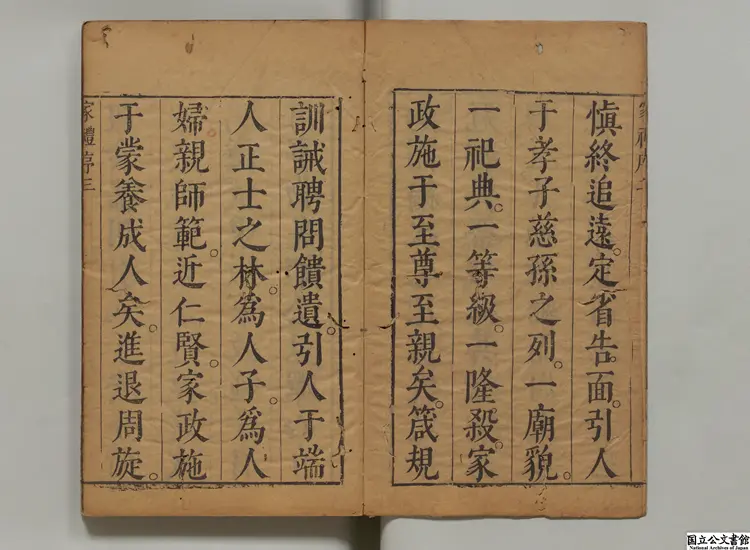 慎終追遠。定省告面。引人
于孝子慈孫之列。一廟貌。
一祀典。一等級。一隆殺。家
政施于至尊至親矣。箴規
訓誡聘問饋遺。引人于端
人正士之林。為人子。為人
婦親師範。近仁賢。家政施
于蒙養成人矣。進退周旋。
家禮序三
国立公文書館
National Archives of Japan